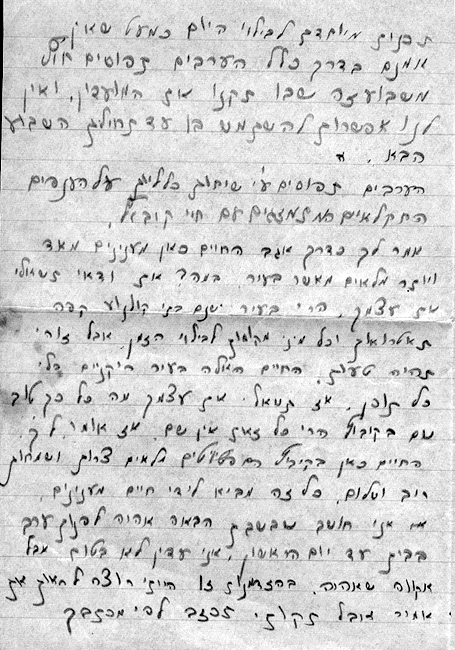 תכנית מיוחדת לבילוי היום כמעט שאין
אמנם בדרך כלל הערבים תפוסים חוץ
משבוע זה שבו תקנו את המועדון, ואין
לנו אפשרות להשתמש בו עד תחילת השבוע
הבא.
הערבים תפוסים ע"י שיחות כלליות על הענפים
החקלאים המתמזגים עם חיי קובוץ,
אמר לך כדרך אגב החיים כאן מענינים מאד
ויותר מלאים מאשר בעיר, במה? את ודאי תשאלי
את עצמך, הרי בעיר ישנם בתי קולנוע קפה
תאטרואות וכל מיני מקומות לבילוי הזמן, אבל זוהי
תהיה טעות, החיים האלה בעיר ריקנים בלי
כל תוכן, אז תשאלי את עצמך מה כל כך טוב
שם בקיבוץ הרי כל זאת אין שם, אז אומר לך:
החיים כאן בקיבוץ הם פשוטים מלאים צרות ושמחות
ריב ושלום, כל זה מביא לידי חיים מענינים,
אני חושב שבשבת הבאה אהיה להנות ערב
בבית עד יום הראשון, אני עדין לא בטוח אבל
אקווה שאהיה, בהזדמנות זו הייתי רוצה לראות את
אמור אבל תקותי לפי מכתבך